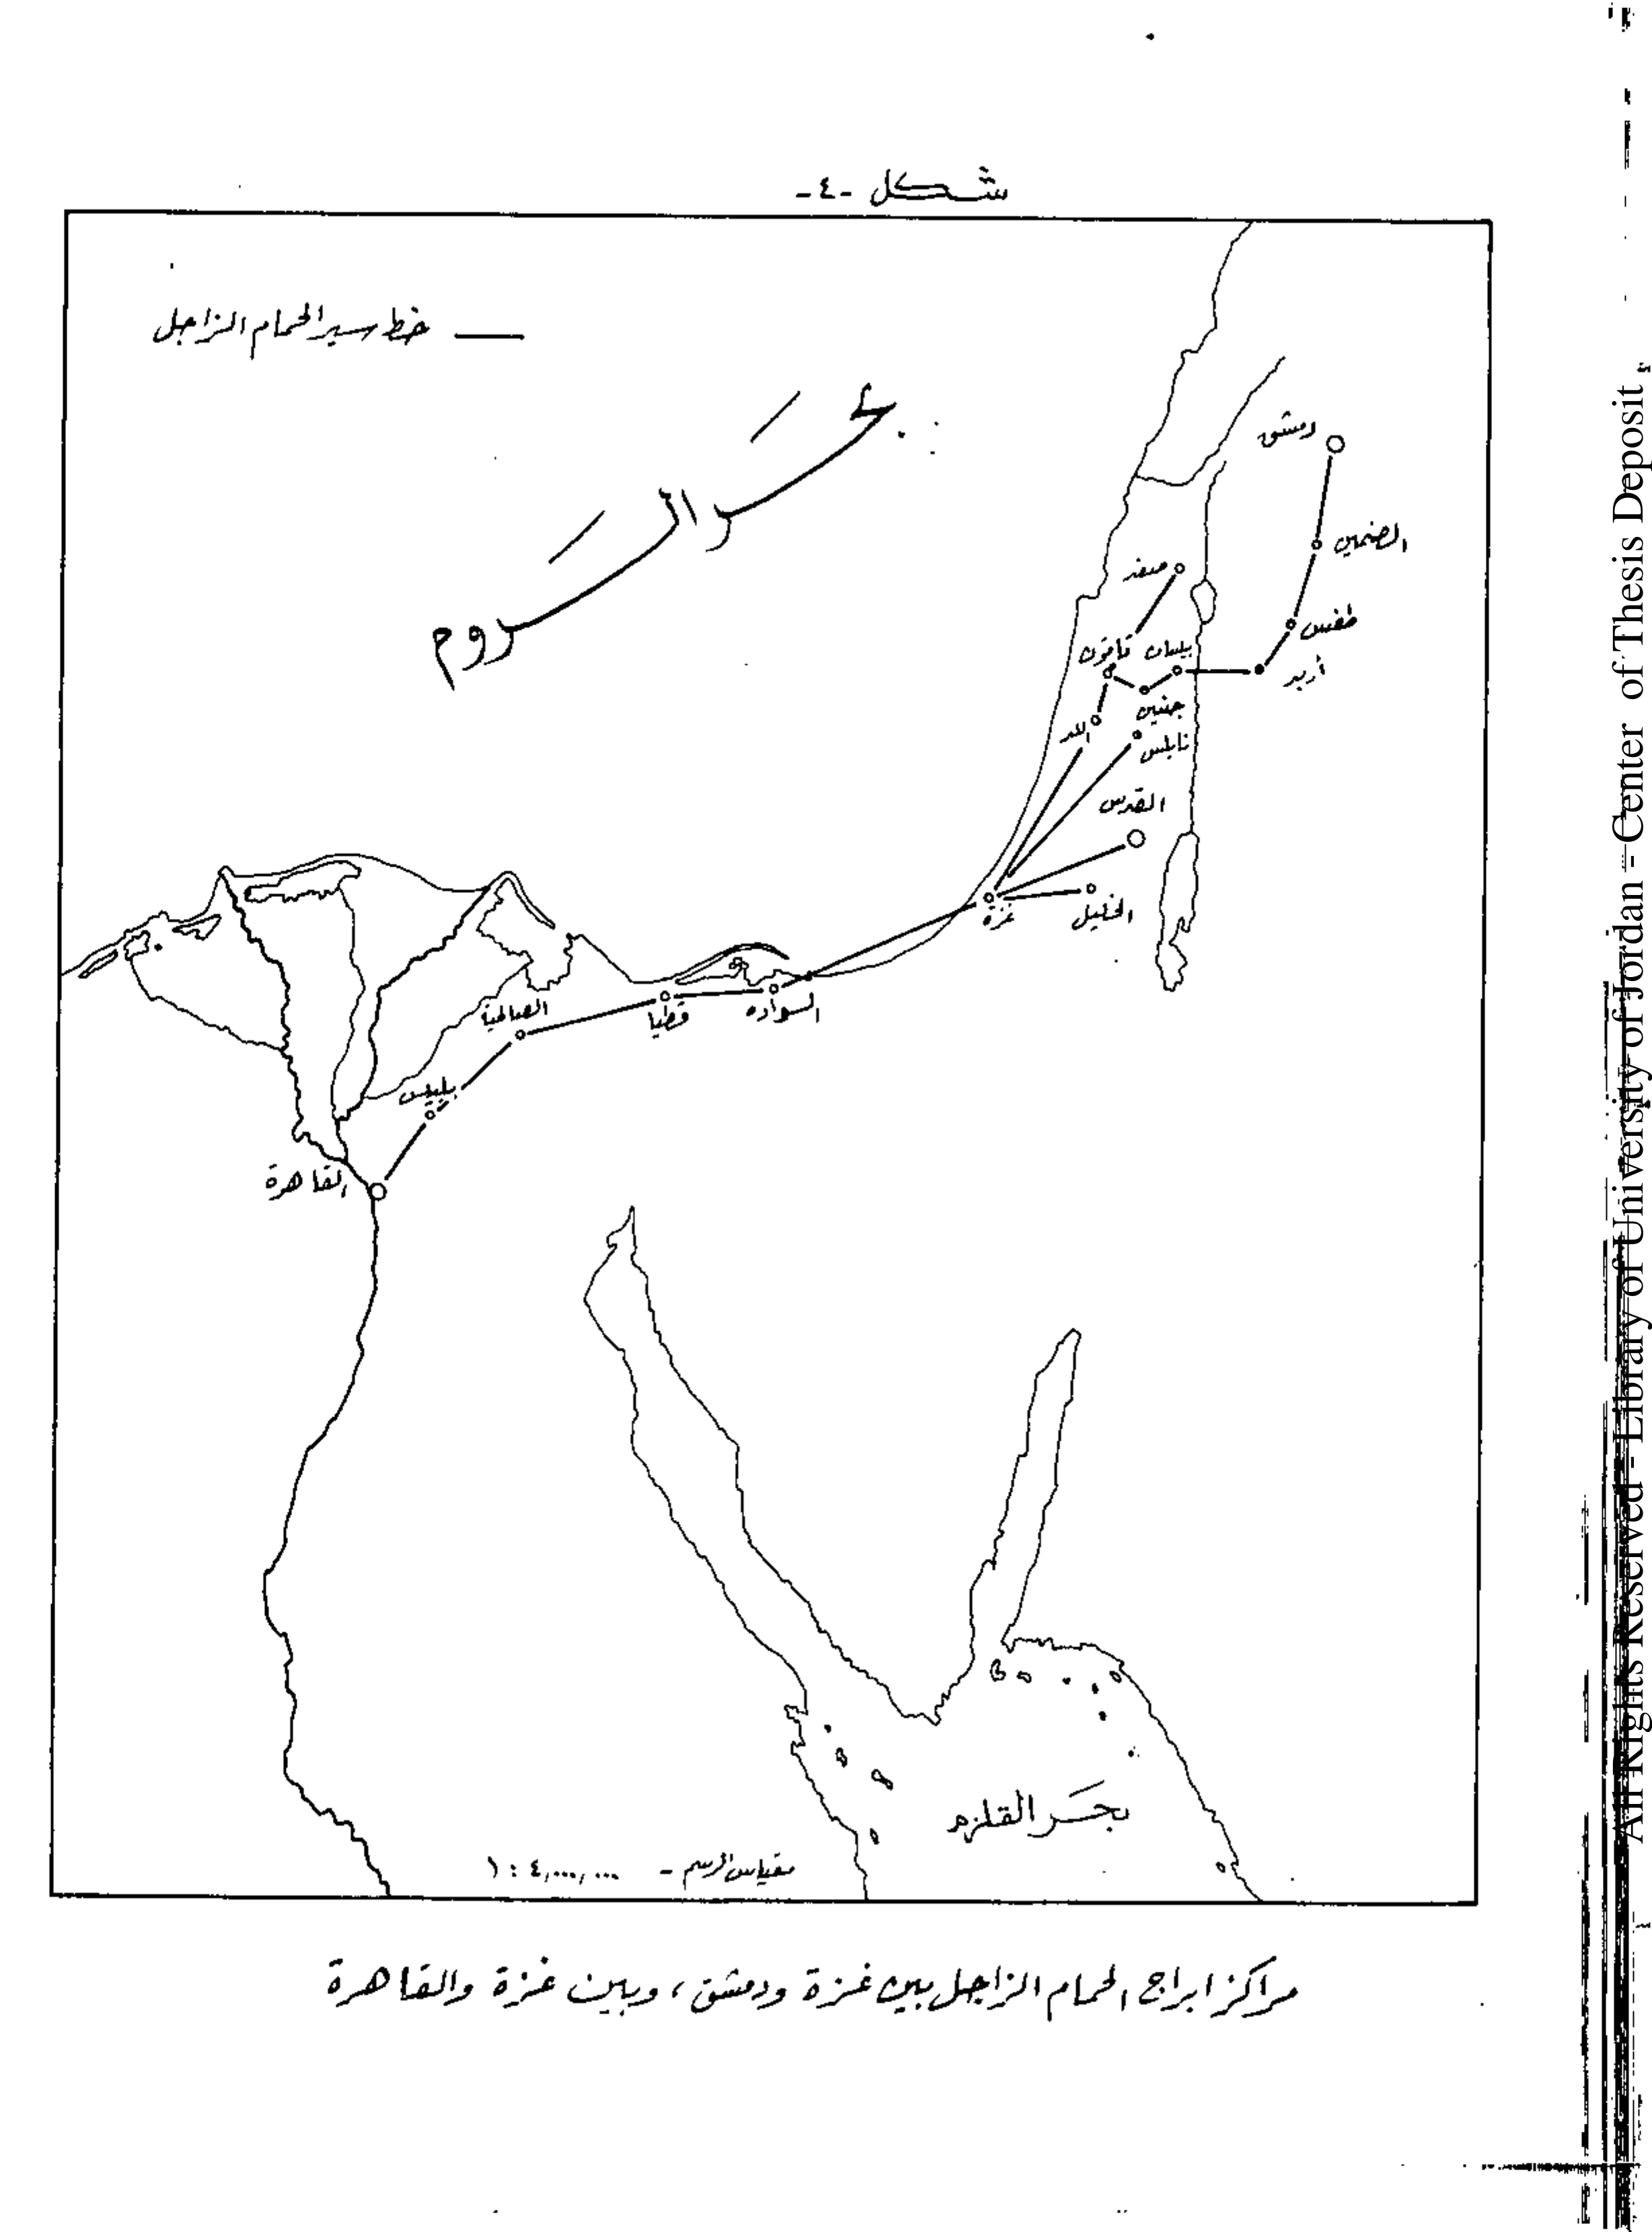 شكل -٤-
خط سير الحمام الزاجل
بحر الروم
دمشق
الصنمين
صفد
طفس
قاقون
بيسان
أربد
جنين
اللد
نابلس
القدس
الخليل
غزة
الصالحية
قطيا
السواده
بلبيس
القاهرة
بحر القلزم
مقياس الرسم - ١:٤,٠٠٠,٠٠٠
مراكز ابراج الحمام الزاجل بين غزة ودمشق، وبين غزة والقاهرة
All Rights Reserved - Library of University of Jordan - Center of Thesis Deposit